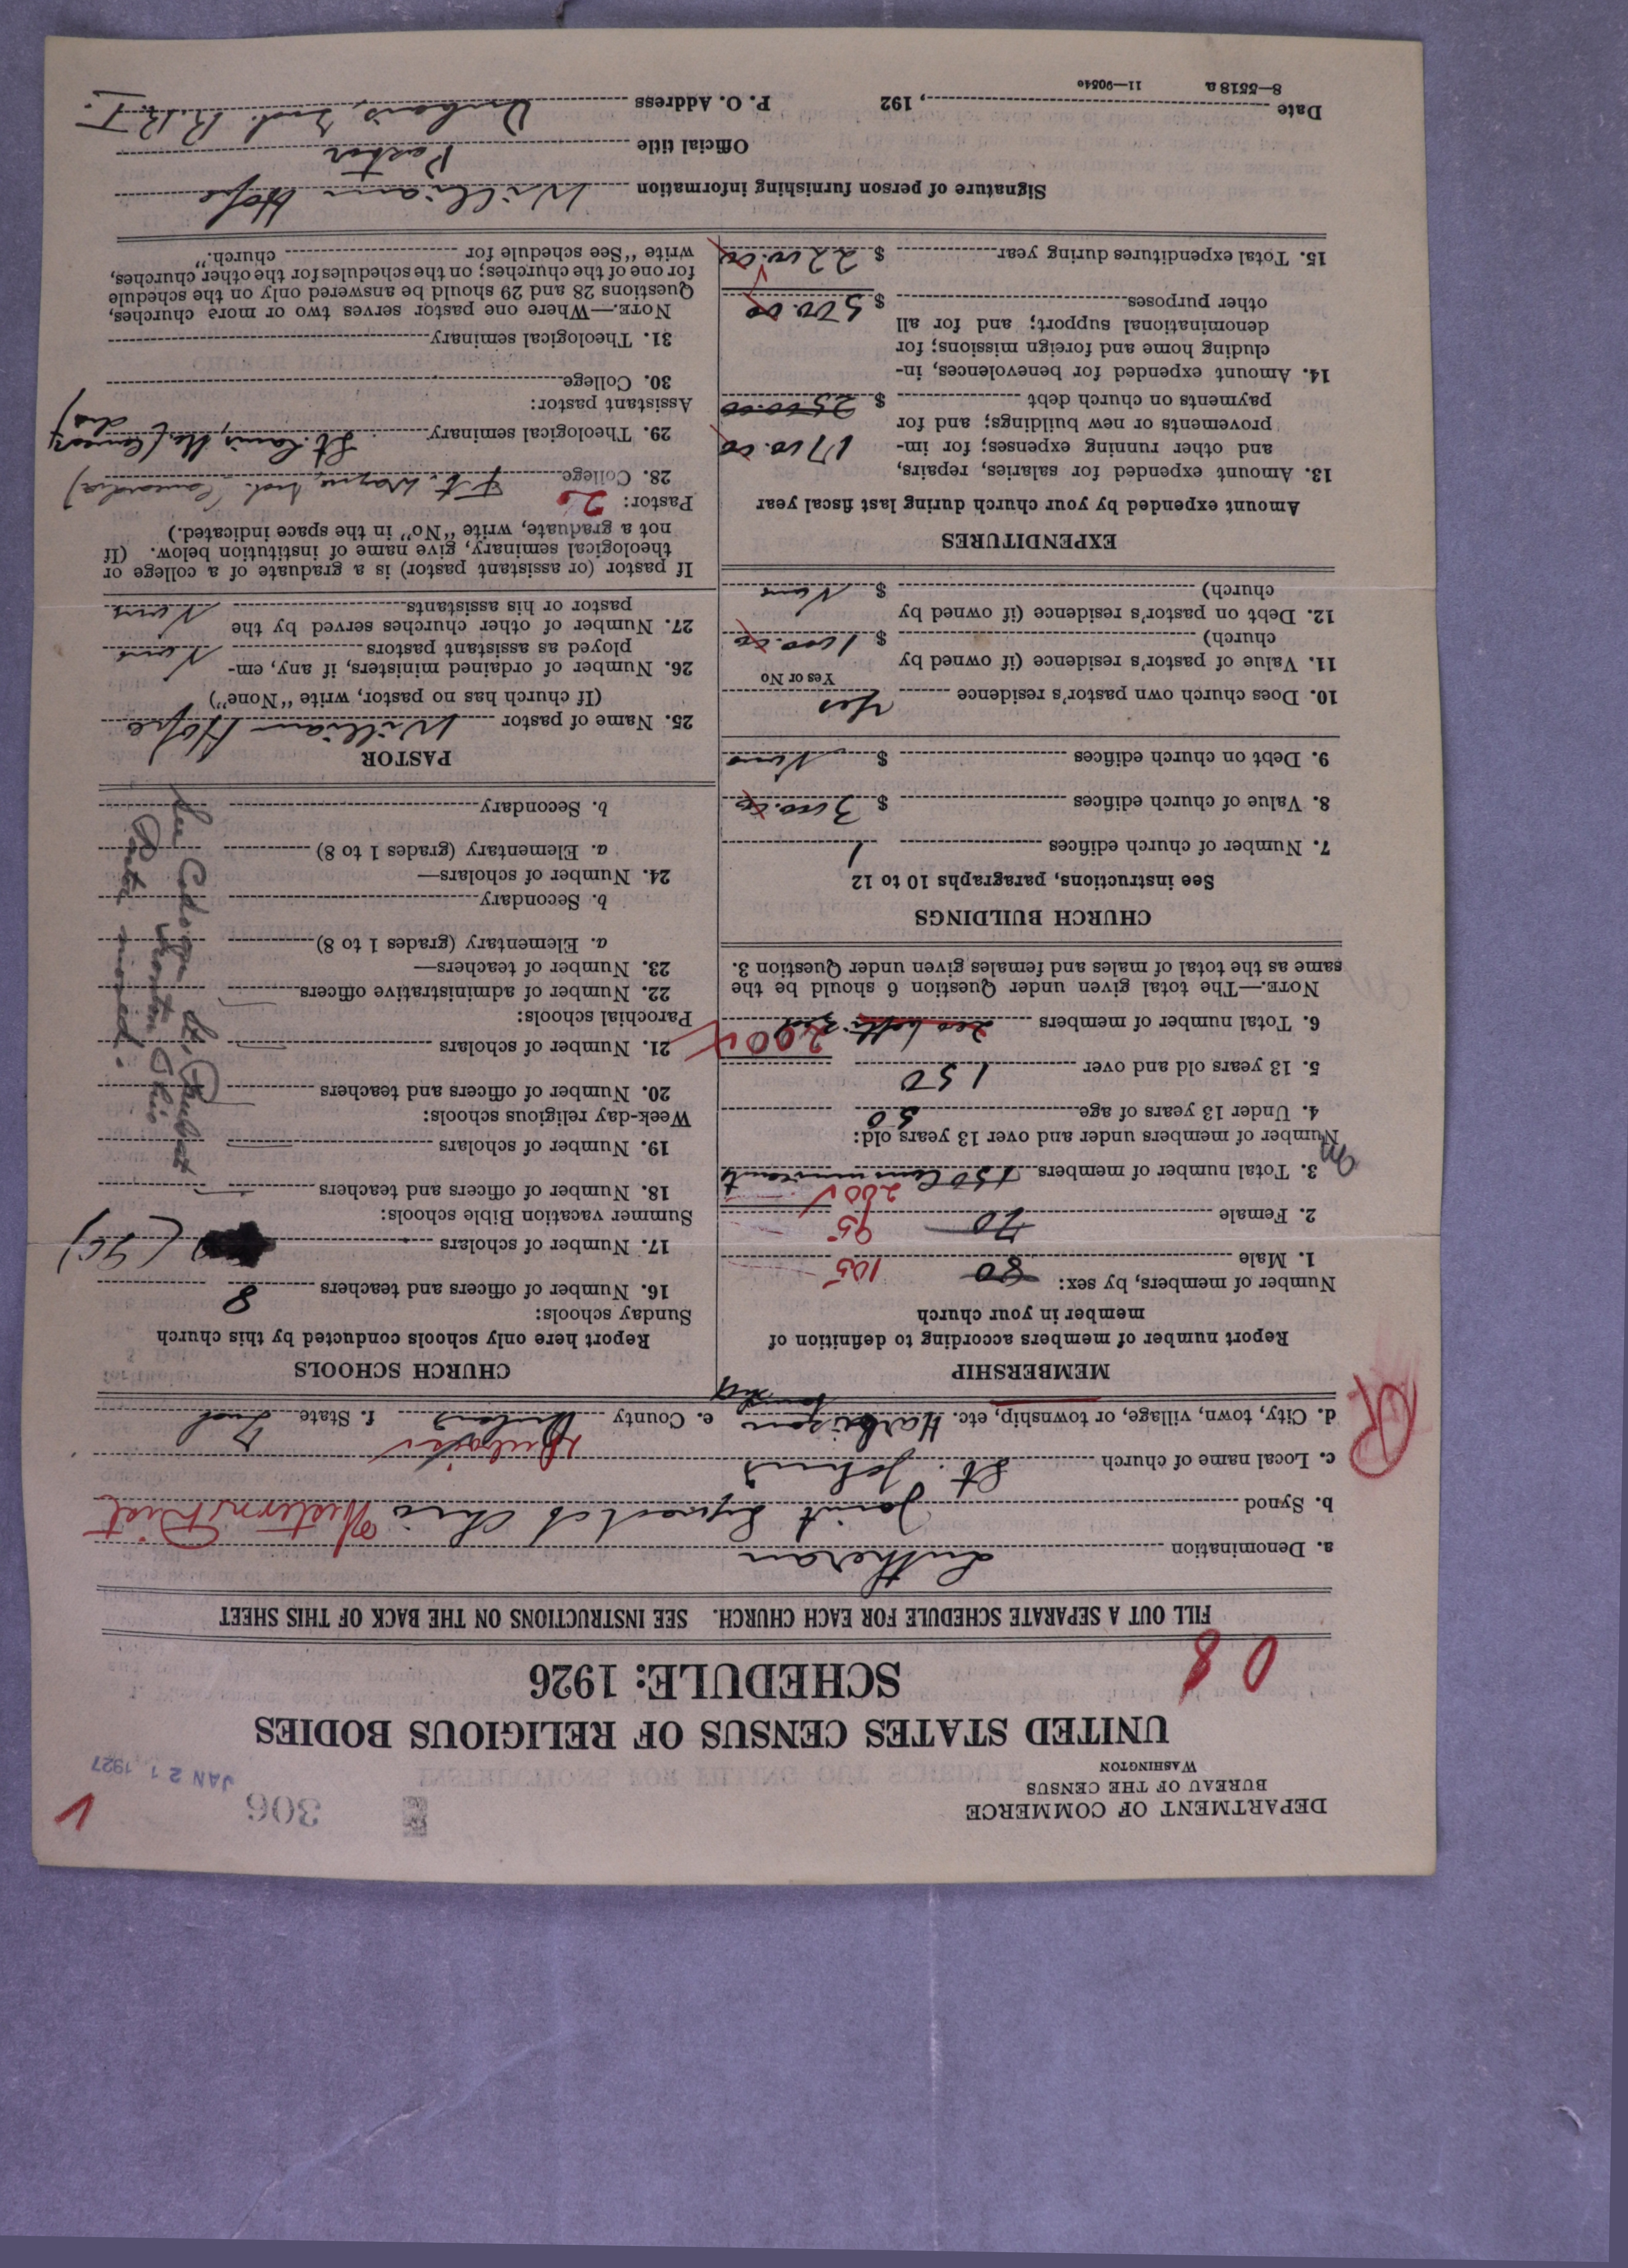 DEPARTMENT OF COMMERCE
BUREAU OF THE CENSUS
WASHINGTON
306
JAN 21 1927
UNITED STATES CENSUS OF RELIGIOUS BODIES
SCHEDULE: 1926
08
FILL OUT A SEPARATE SCHEDULE FOR EACH CHURCH. SEE INSTRUCTIONS ON THE BACK OF THIS SHEET
a. Denomination Lutheran
b. Synod Joint Synod of Ohio Western Dist
c. Local name of church St. Johns
d. City, town, village, or township, etc. Harbison e. County Dubois f. State Ind
MEMBERSHIP
Report number of members according to definition of
member in your church
Number of members, by sex:
1. Male 80 105
2. Female 70 95
3. Total number of members 150 Communicants 200
Number of members under and over 13 years old:
4. Under 13 years of age 50
5. 13 years old and over 150
6. Total number of members 200
NOTE.—The total given under Question 6 should be the
same as the total of males and females given under Question 3.
CHURCH BUILDINGS
See instructions, paragraphs 10 to 12
7. Number of church edifices 1
8. Value of church edifices $ 3000.00
9. Debt on church edifices $ None
10. Does church own pastor's residence Yes
Yes or No
11. Value of pastor's residence (if owned by
church) $ 1000.00
12. Debt on pastor's residence (if owned by
church) $ None
EXPENDITURES
Amount expended by your church during last fiscal year
13. Amount expended for salaries, repairs,
and other running expenses; for im-
provements or new buildings; and for
payments on church debt $ 1700.00
14. Amount expended for benevolences, in-
cluding home and foreign missions; for
denominational support; and for all
other purposes $ 500.00
15. Total expenditures during year $ 2200.00
CHURCH SCHOOLS
Report here only schools conducted by this church
Sunday schools:
16. Number of officers and teachers 8
17. Number of scholars (90)
Summer vacation Bible schools:
18. Number of officers and teachers
19. Number of scholars
Week-day religious schools:
20. Number of officers and teachers
21. Number of scholars
Parochial schools:
22. Number of administrative officers
23. Number of teachers—
a. Elementary (grades 1 to 8)
b. Secondary
24. Number of scholars—
a. Elementary (grades 1 to 8)
b. Secondary
PASTOR
25. Name of pastor William Hofe
(If church has no pastor, write "None")
26. Number of ordained ministers, if any, em-
ployed as assistant pastors None
27. Number of other churches served by the
pastor or his assistants None
If pastor (or assistant pastor) is a graduate of a college or
theological seminary, give name of institution below. (If
not a graduate, write "No" in the space indicated.)
Pastor: 2
28. College Ft. Wayne, Ind. (Concordia)
29. Theological seminary St. Louis, Mo (Concordia)
Assistant pastor:
30. College
31. Theological seminary
NOTE.—Where one pastor serves two or more churches,
Questions 28 and 29 should be answered only on the schedule
for one of the churches; on the schedules for the other churches,
write "See schedule for church."
Signature of person furnishing information William Hofe
Official title Pastor
Date , 192 P. O. Address Dubois, Ind. R.R. I.
8—5518 a 11—9054c